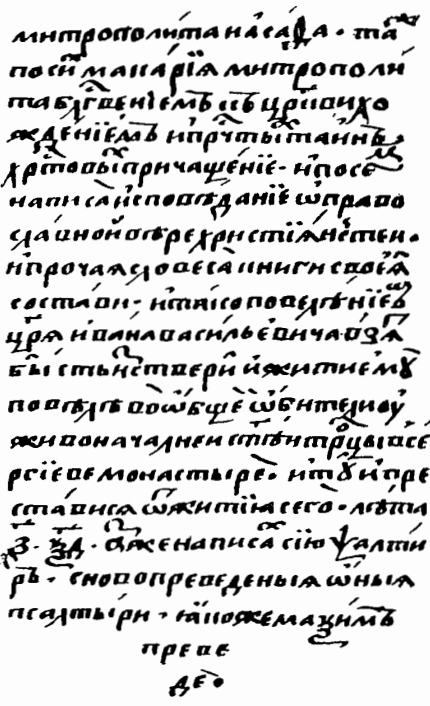 митрополи́та иа́саѳа. таⷤ
по сиⷯ макарїꙗ митрополи́
та блгⷭ҇венїемъ въ црк҃ви хо
жденїемъ и прⷱ҇тыⷯ таинъ
хрⷭ҇товыⷯ причащенїе. и по се
написа исповѣданїе ѡ право
славной вѣре христїꙗнстеи.
и прочаꙗ словеса книги своеꙗ
состави. и по повелѣнїе
црⷭ҇ꙗ ивана васильевича взꙗⷮ
бысть ис твери и житие мꙋ
повелѣ во ѡбщеⷨ ѡбители оу
живоначалнеи ст҃ѣи трⷪ҇цы в се
рсїеве монастыре. и тꙋ и пре
ставися ѿ житїꙗ сего. лѣта
҂з. ѯд. же написа сїю ѱалти
рь. сново преведеныꙗ ѿ иныꙗ
псалтыри. ꙗкоже маѯимъ
преве
де.